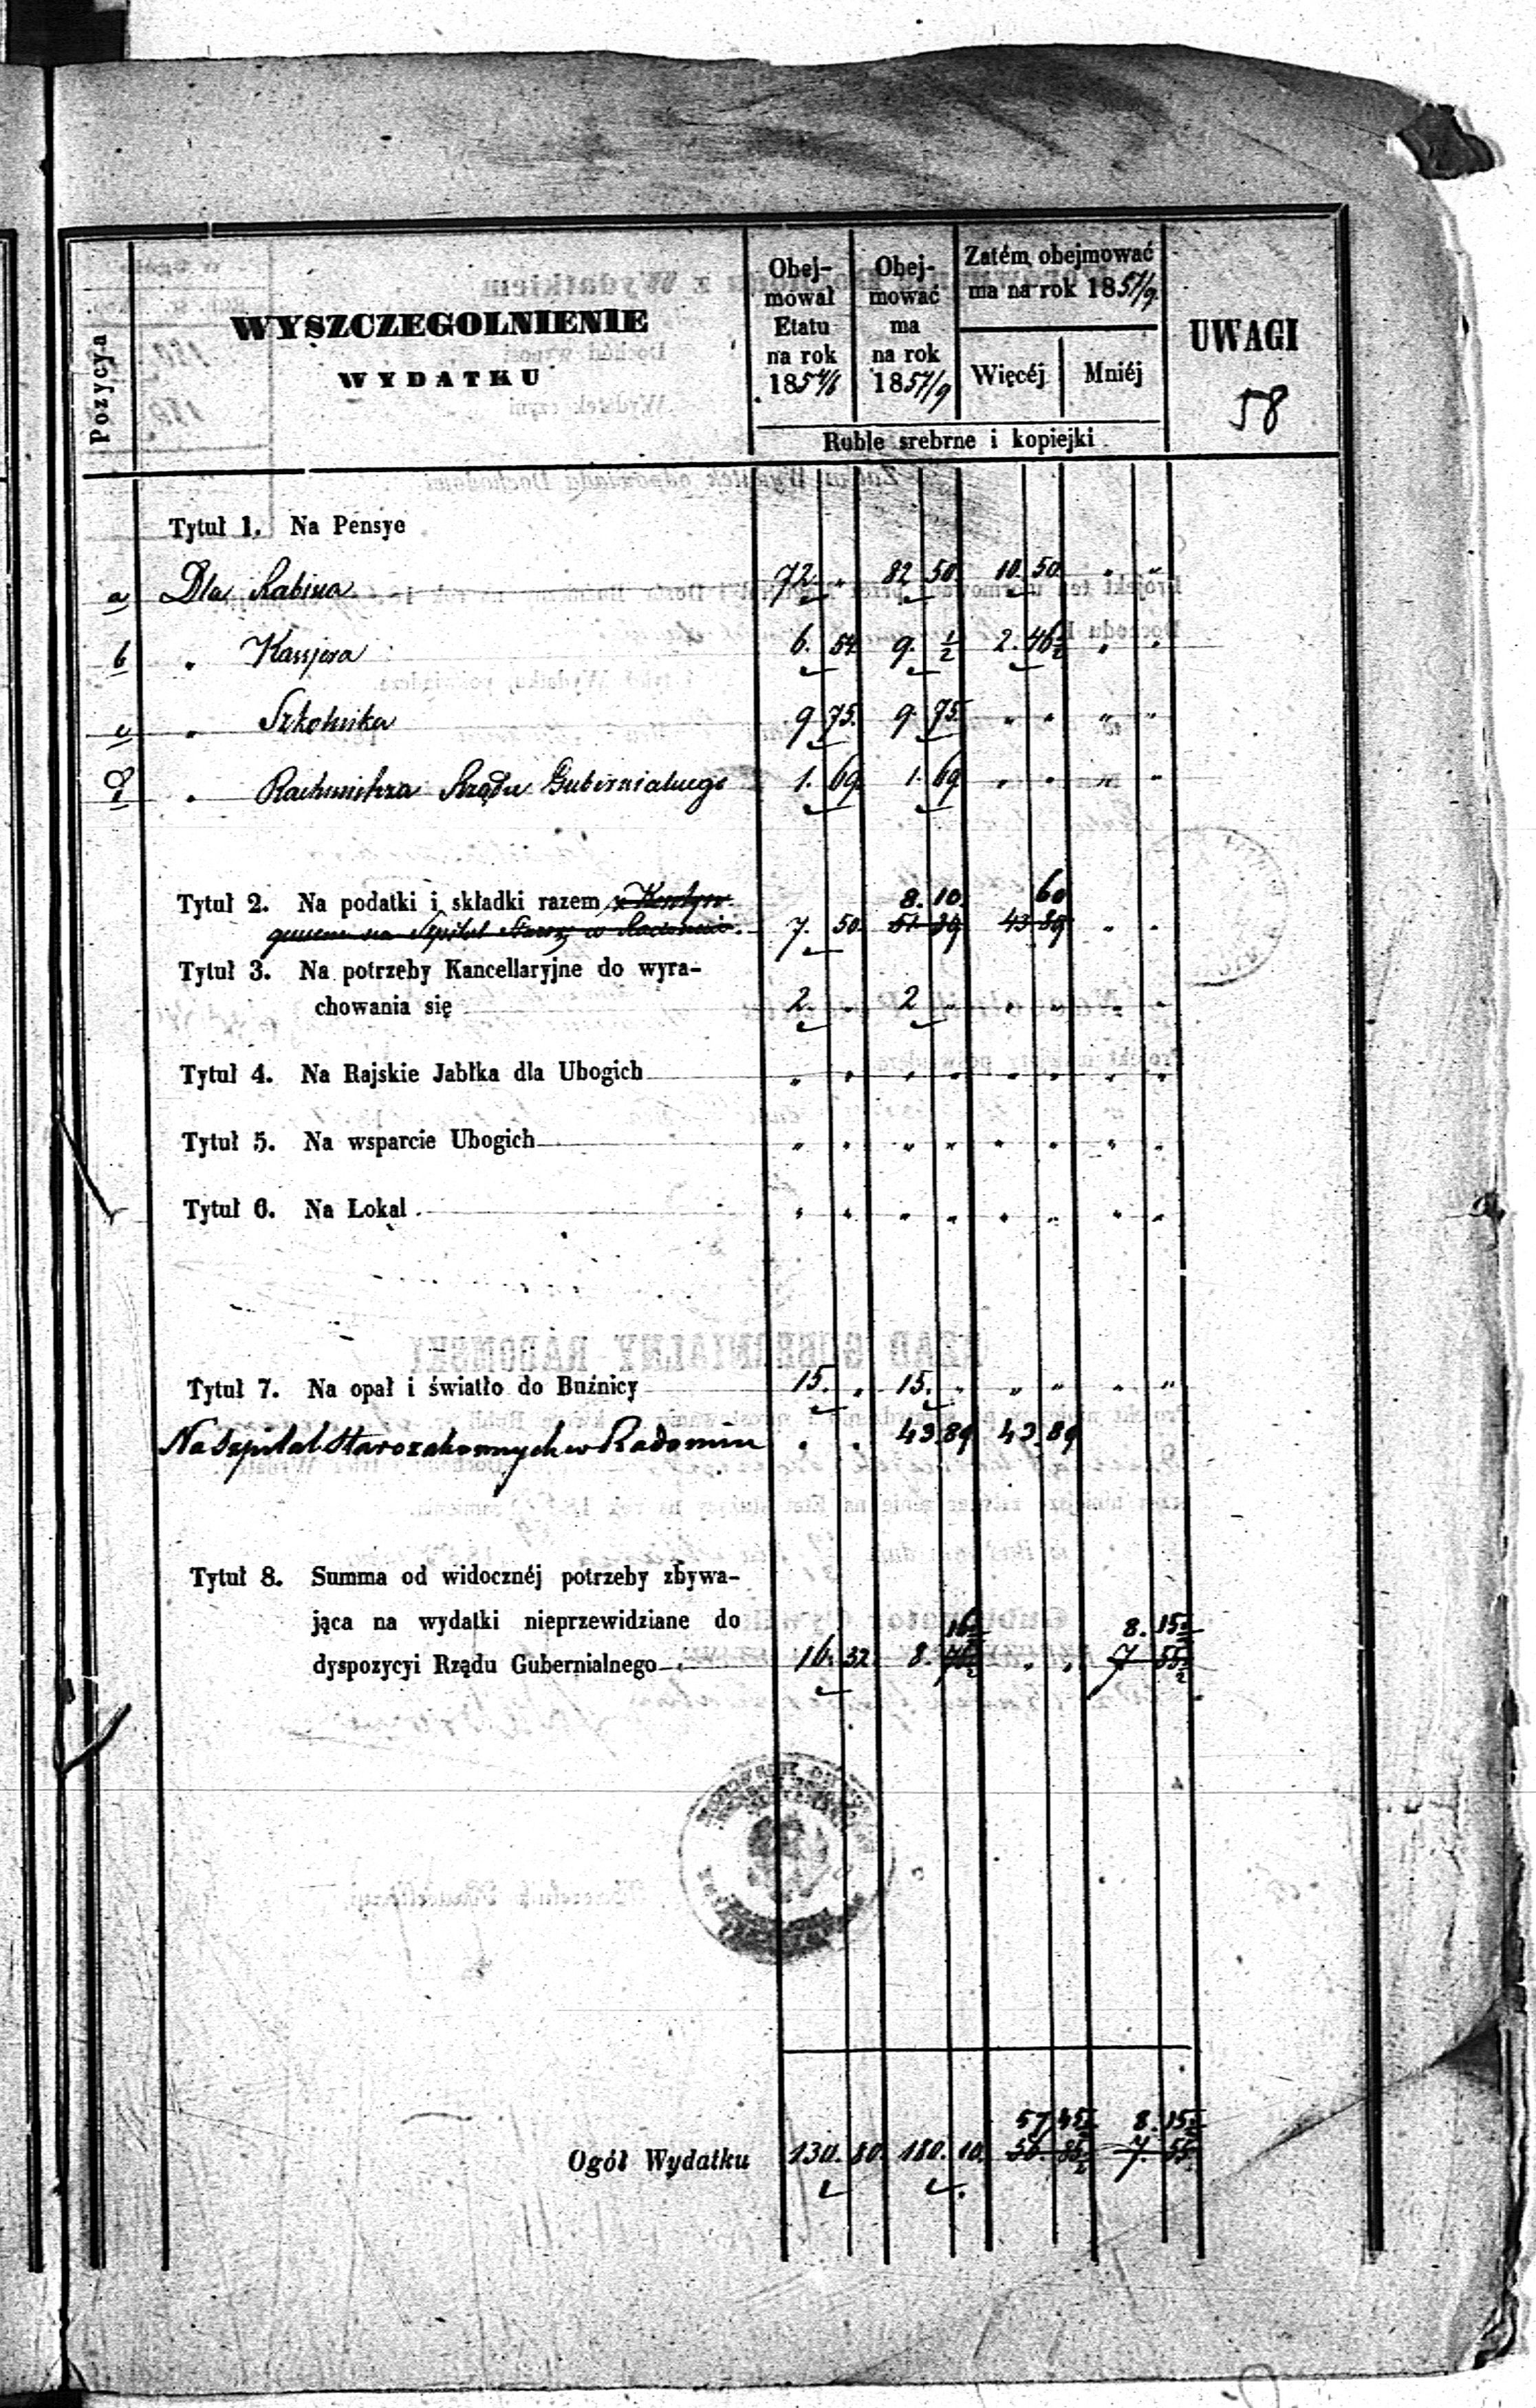 Pozycya
WYSZCZEGOLNIENIE
WYDATKU
Obej-
mował
Etatu
na rok
1854/6
Obej-
mować
ma
na rok
1857/9
Zatém obejmować
ma na rok 1857/9
Więcéj
Mniéj
UWAGI
58
Ruble srebrne i kopiejki
Tytuł 1. Na Pensye
a Dla Rabina 72. „ 82 50. 10. 50. „ „
b „ Kassjera 6. 54 9. ½ 2. 46½ „ „
c „ Szkolnika 9 75. 9. 75. „ „ „ „
d „ Rachmistrza Rządu Gubernialnego 1. 69. 1. 69 „ „ „ „
8. 10. 60
Tytuł 2. Na podatki i składki razem z Kontyn-
gensem na Szpital Staroz w Radomiu. 7. 50. 51 39 43 89 „ „
Tytuł 3. Na potrzeby Kancellaryjne do wyra-
chowania się 2. „ 2 „ „ „ „ „
Tytuł 4. Na Rajskie Jabłka dla Ubogich „ „ „ „ „ „ „ „
Tytuł 5. Na wsparcie Ubogich „ „ „ „ „ „ „ „
Tytuł 6. Na Lokal „ „ „ „ „ „ „ „
Tytuł 7. Na opał i światło do Buźnicy 15. „ 15. „ „ „ „ „
Na Szpital Starozakonnych w Radomiu „ „ 43.89 43.89
Tytuł 8. Summa od widocznéj potrzeby zbywa-
jąca na wydatki nieprzewidziane do 16½ 8. 15½
dyspozycyi Rządu Gubernialnego 16. 32 8. 76½ „ „ 7 55½
57 45½ 8. 15½
Ogół Wydatku 130. 80. 180. 10. 56. 85½ 7. 55½